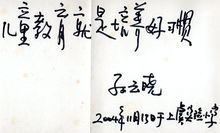 儿童教育就是培养好习惯
孙云晓
2004年11月13日于上虞实验小学